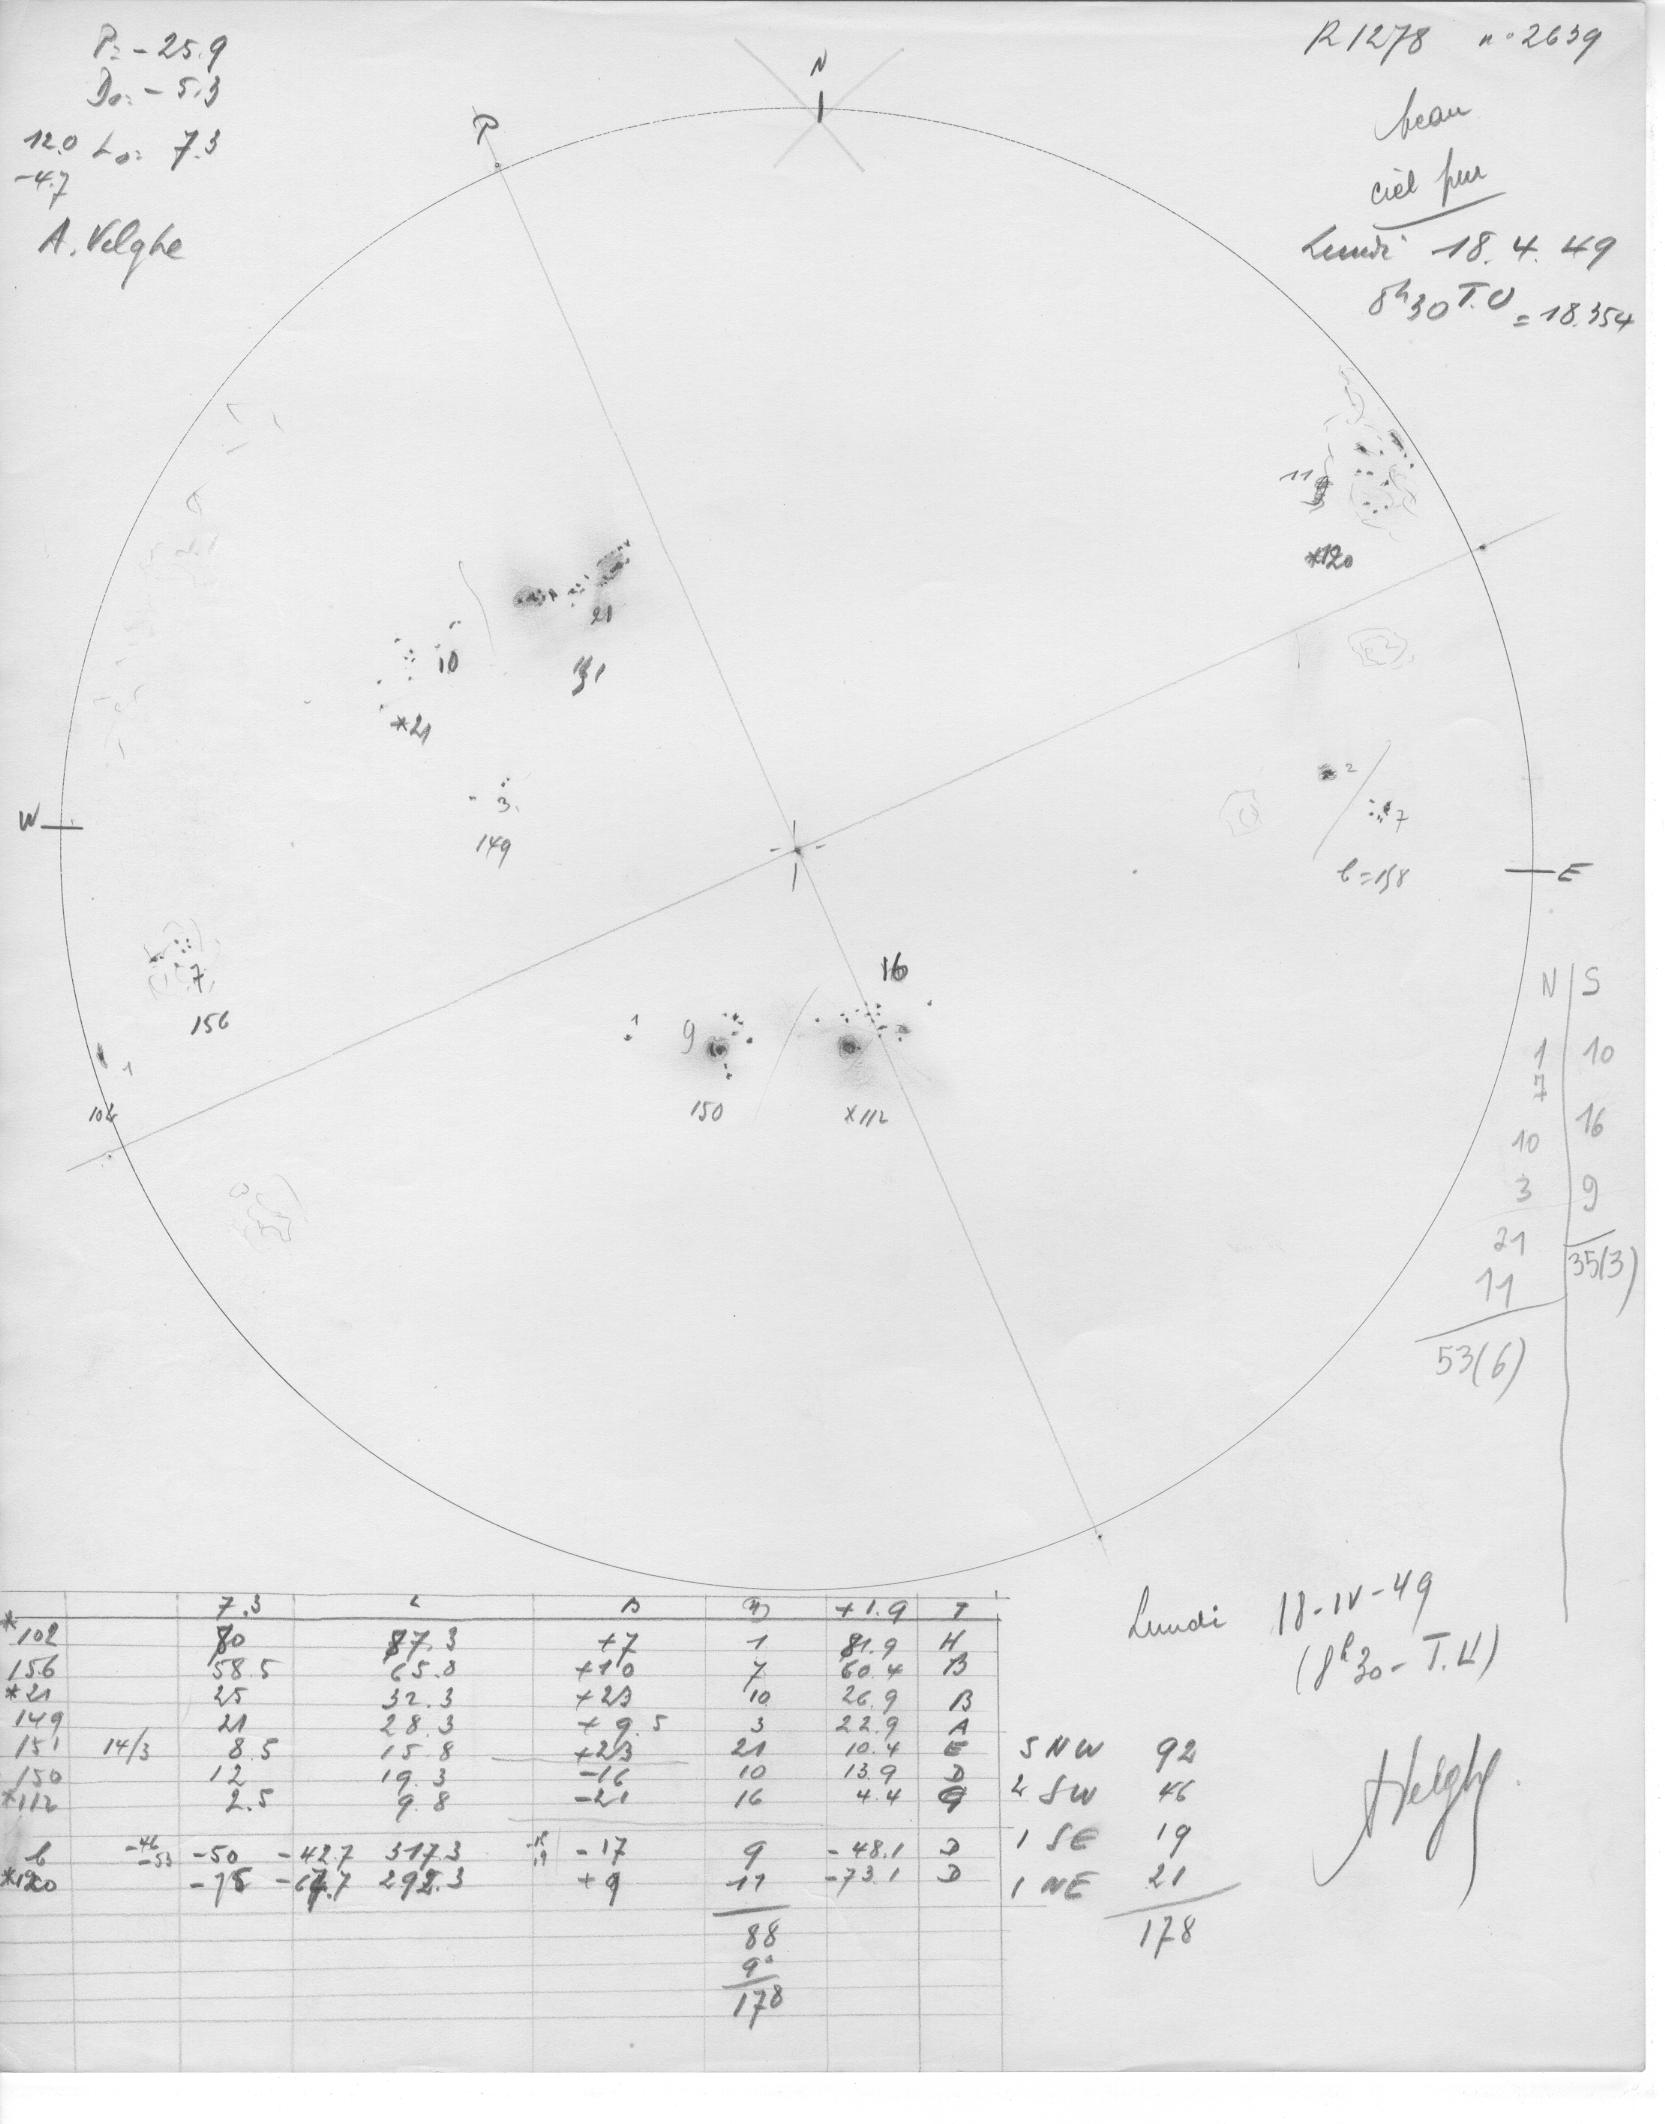 P= -25.9
D₀= -5.3
12.0 L₀= 7.3
-4.7
A. Velghe
R 1278 n° 2639
beau
ciel pur
Lundi 18.4.49
8h30 T.U = 18.354
N
P
11
*120
21
10
151
*21
2
7
3
149
b=158
W
E
16
7
156
1
9
1
102
150
x112
N S
1 10
7
10 16
3 9
21 35(3)
11
53(6)
7.3 L B +1.9 T
*102 80 87.3 +7 1 81.9 H
156 58.5 65.8 +10 7 60.4 B
*21 25 32.3 +23 10 26.9 B
149 21 28.3 +9.5 3 22.9 A
151 14/3 8.5 15.8 +23 21 10.4 E
150 12 19.3 -16 10 13.9 D
*112 2.5 9.8 -21 16 4.4 G
b -46 -53 -50 -42.7 317.3 -17 9 -48.1 D
*120 -75 -67.7 292.3 +9 11 -73.1 D
88
90
178
Lundi 18-IV-49
(8h30 - T.U)
5 NW 92
2 SW 46
1 SE 19
1 NE 21
178
AVelghe